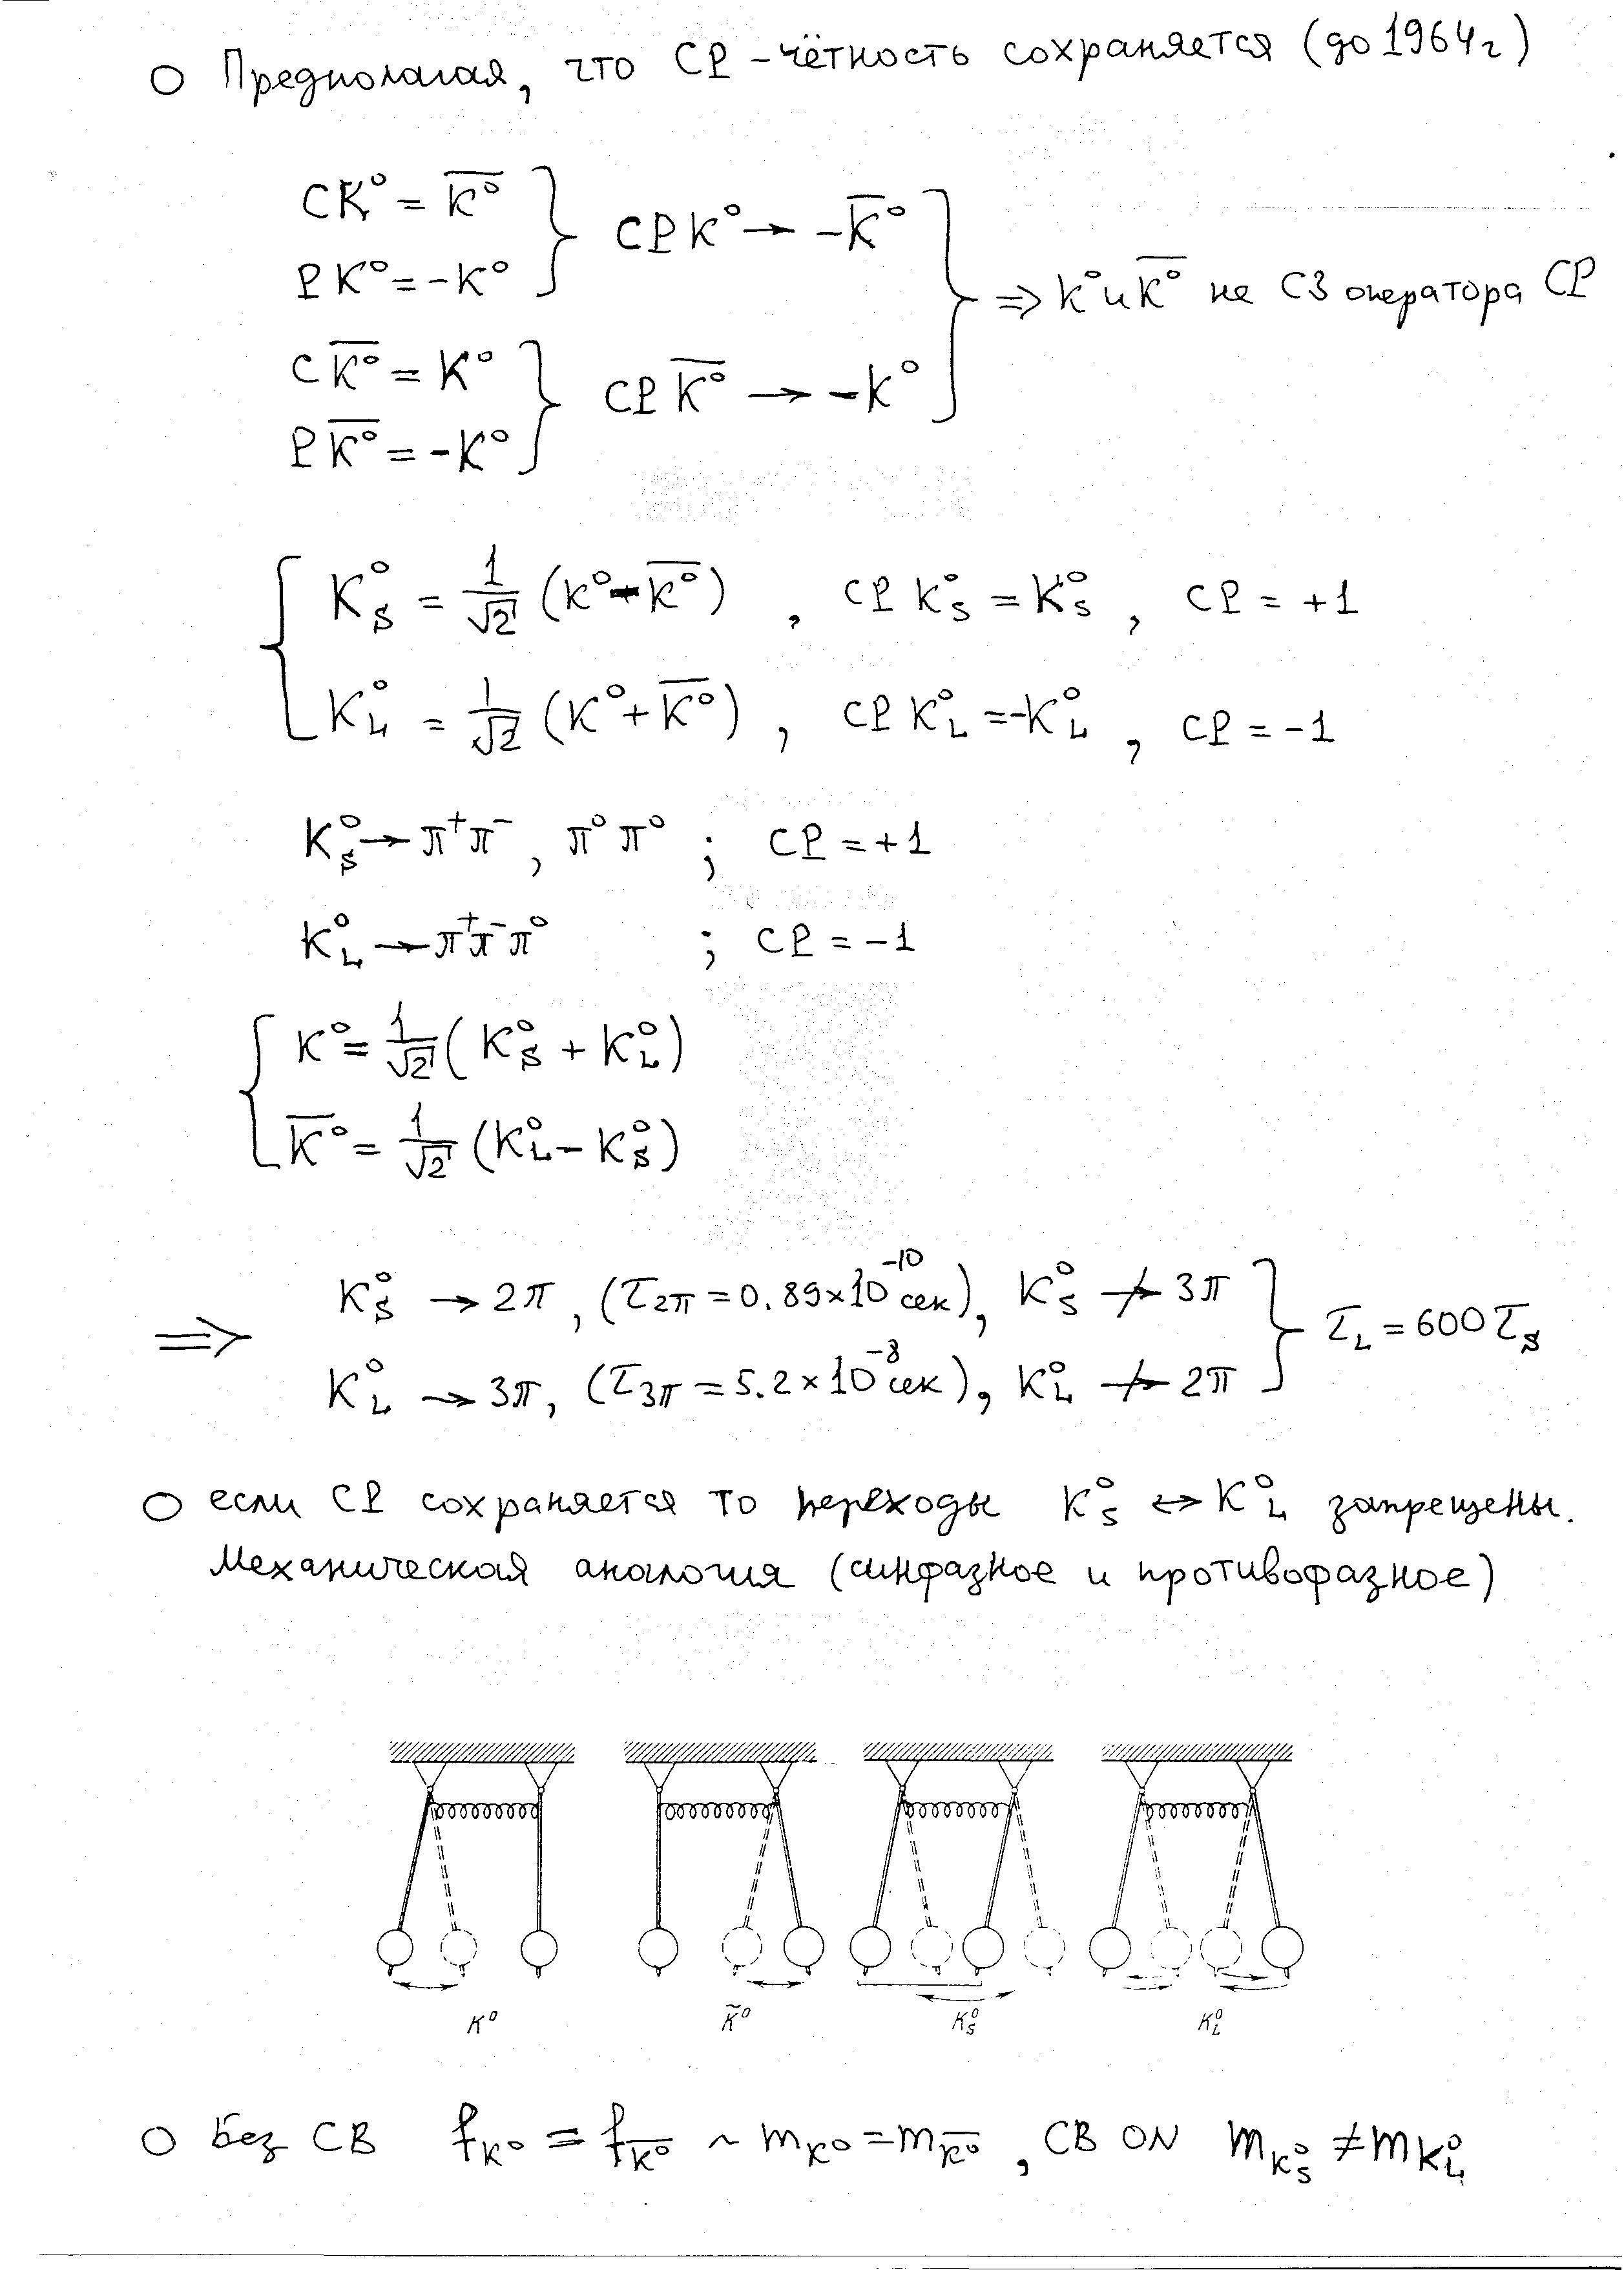 ○ Предполагая, что CP - чётность сохраняется (до 1964г)
CK⁰ = K̅⁰
PK⁰ = -K⁰
CPK⁰ → -K̅⁰
CK̅⁰ = K⁰
PK̅⁰ = -K⁰
CPK̅⁰ → -K⁰
⇒ K⁰ и K̅⁰ не СЗ оператора CP
K⁰_S = 1/√2 (K⁰ - K̅⁰) , CP K⁰_S = K⁰_S , CP = +1
K⁰_L = 1/√2 (K⁰ + K̅⁰) , CP K⁰_L = -K⁰_L , CP = -1
K⁰_S → π⁺π⁻, π⁰π⁰ ; CP = +1
K⁰_L → π⁺π⁻π⁰ ; CP = -1
K⁰ = 1/√2 (K⁰_S + K⁰_L)
K̅⁰ = 1/√2 (K⁰_L - K⁰_S)
⇒ K⁰_S → 2π, (τ_2π = 0.89×10⁻¹⁰ сек), K⁰_S ↛ 3π
K⁰_L → 3π, (τ_3π = 5.2×10⁻⁸ сек), K⁰_L ↛ 2π
τ_L = 600 τ_S
○ если CP сохраняется то переходы K⁰_S ↔ K⁰_L запрещены.
Механическая аналогия (синфазное и противофазное)
K⁰ K̃⁰ K⁰_S K⁰_L
○ без СВ f_K⁰ = f_K̅⁰ ~ m_K⁰ = m_K̅⁰ , СВ ON m_K⁰_S ≠ m_K⁰_L